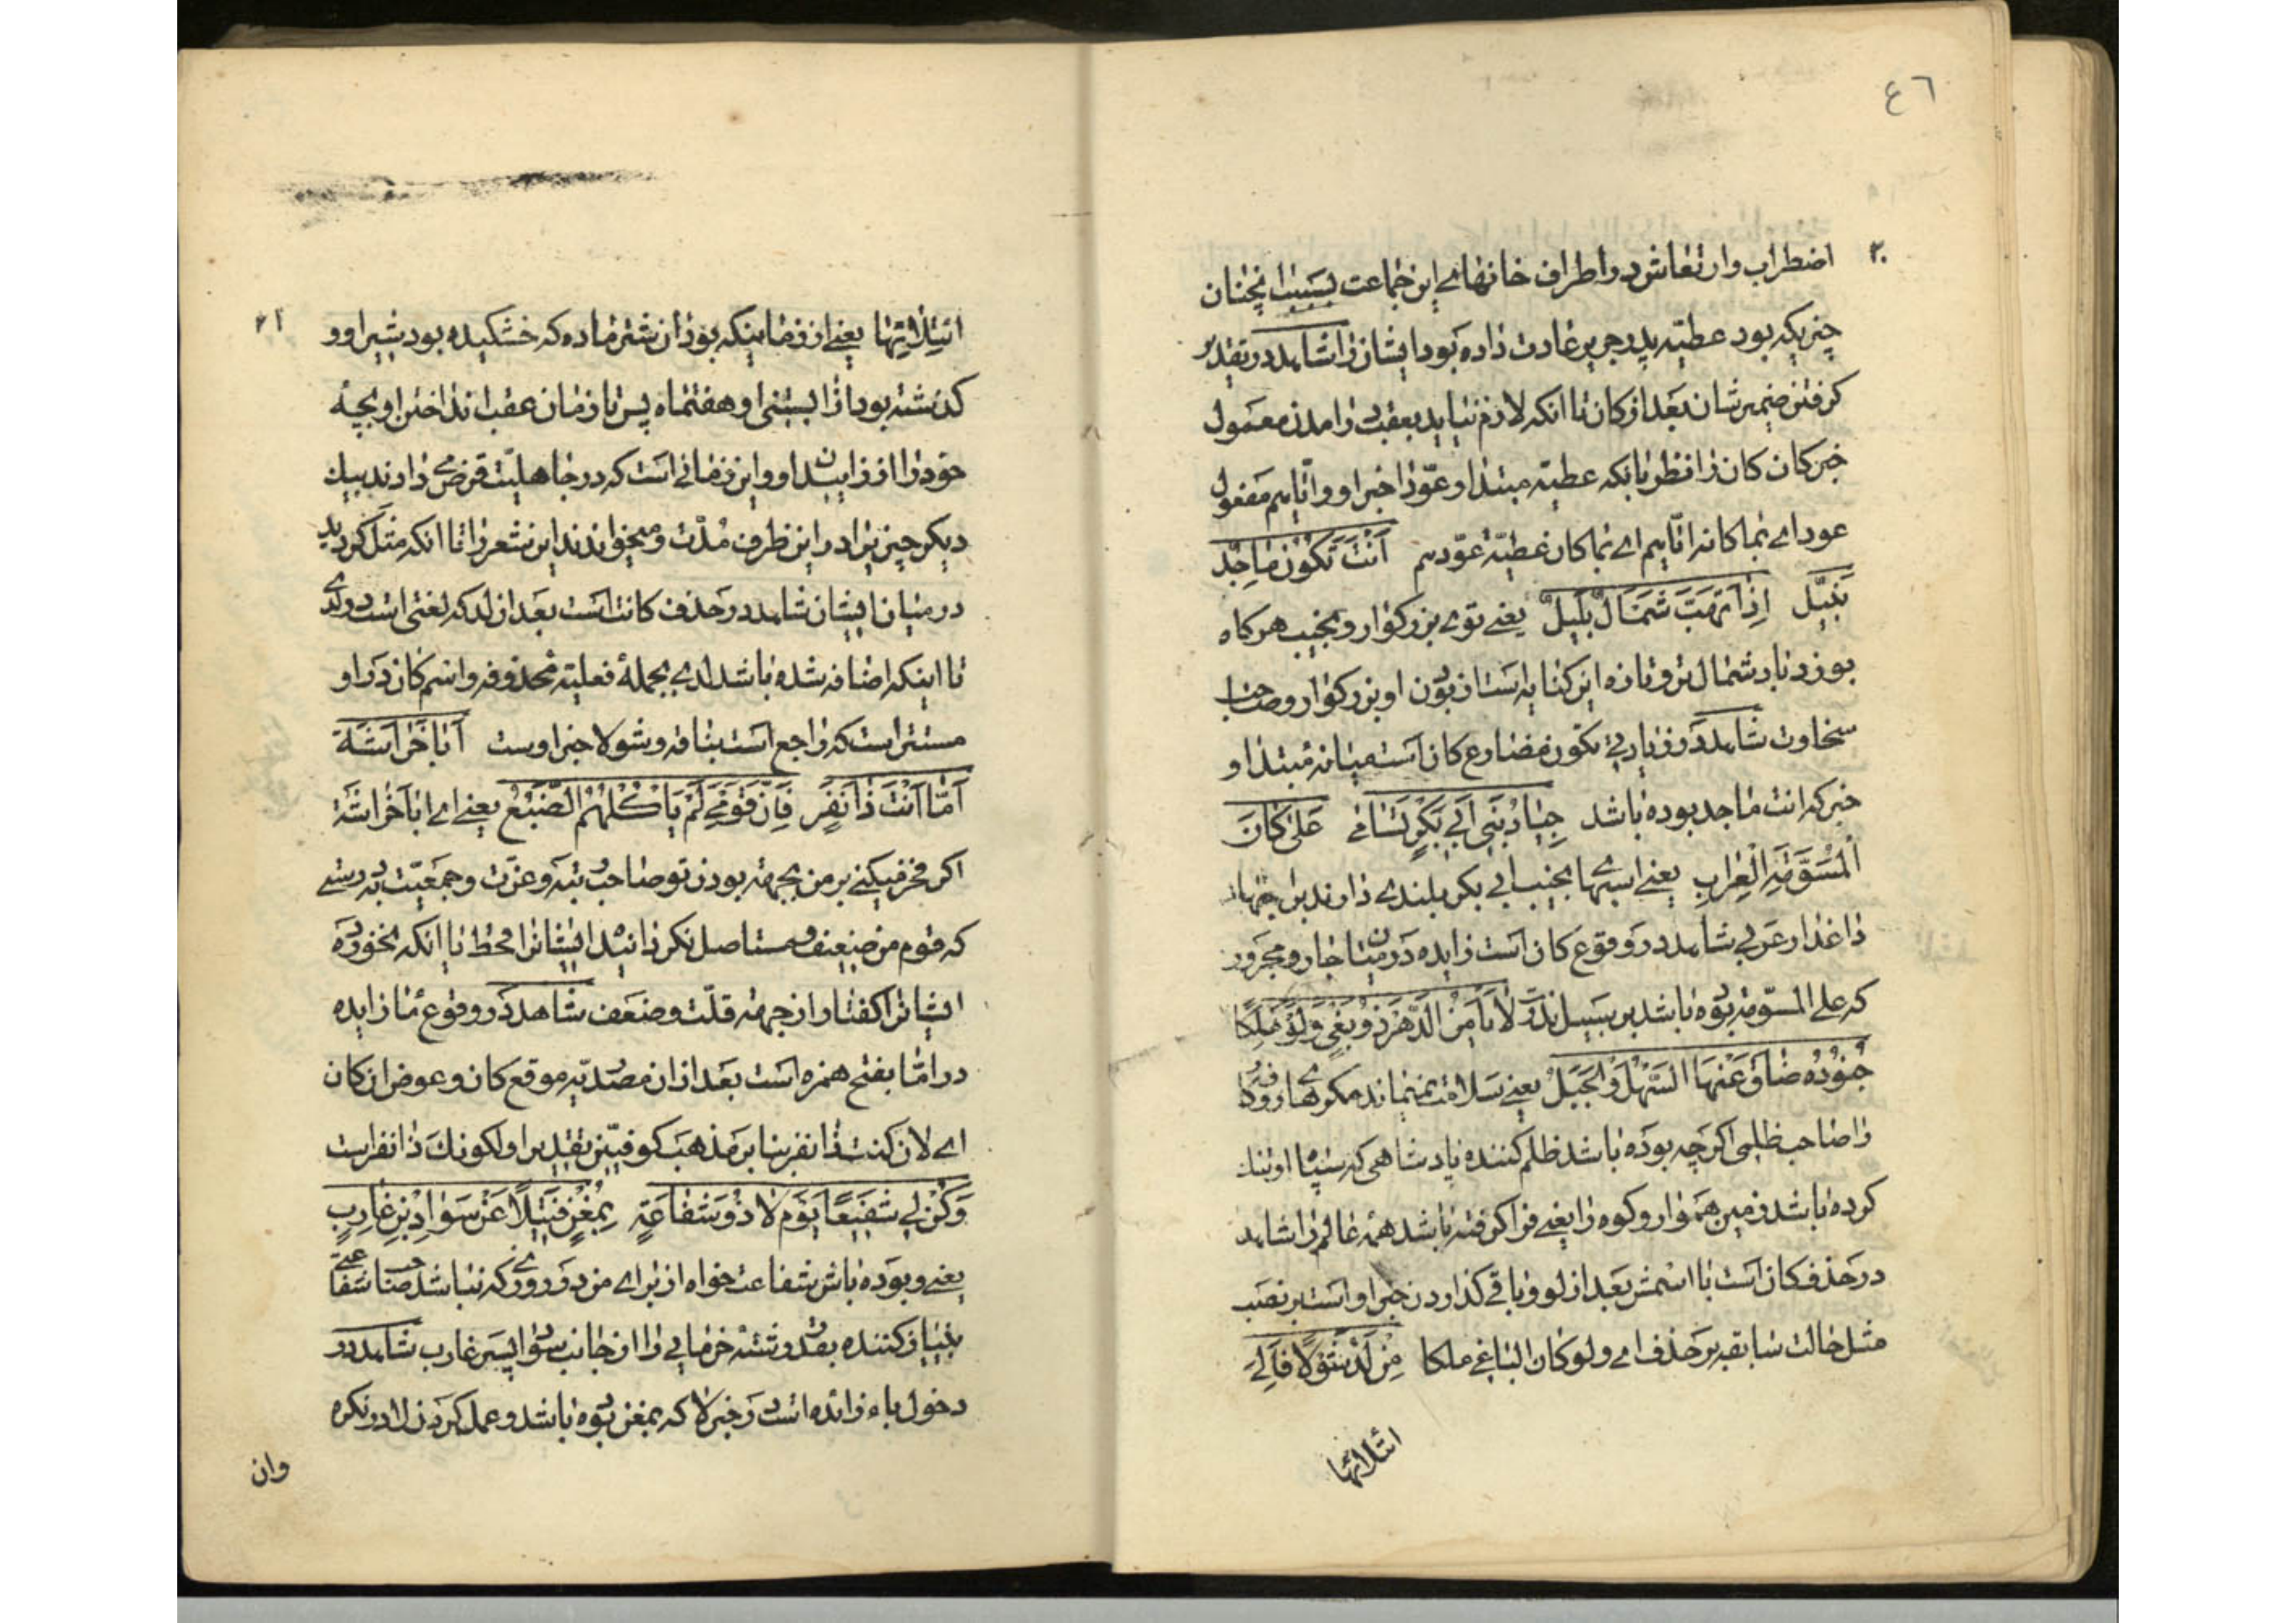 ٤٦
٢٠
اضطراب وارتعاش در اطراف خانهای این جماعت بسبب انچنان
چیزیکه بود عطیه پدر جریر عادت داده بود ایشان را شاهد در تقدیر
کرفتن ضمیر شان بعد از کان تا انکه لازم نیاید بعقب در امدن معمول
خبر کان کان را نظر بانکه عطیه مبتدا و عوّد را خبر او و ایّاهم مفعول
عود ای بما کانه ایّاهم ای بما کان عطیّة عوّدهم اَنْتَ تَکُوْنُ مٰاجِدٌ
نَبِیْلُ اِذٰا تَهُبُّ شَمْاَلٌ بَلِیْلُ یعنی توی بزرکوار و نجیب هرکاه
بوزد باد شمال تر و تازه این کنایه است از بودن او بزرکوار و صاحب
سخاوت شاهد در زیادتی تکون مضارع کان است میانه مبتدا و
خبر که انت ماجد بوده باشد جِیٰادُ بَنِی اَبِی بَکْرٍ تَسٰامیٰ عَلیٰ کٰانَ
الْمُسَوَّمَةِ الْعِرٰابِ یعنی اسبهای نجیب ابی بکر بلندی دارند بر
داغدار عربی شاهد در وقوع کان است زایده در میان جار و مجرور
که علی المسوّمة بوده باشد بر سبیل ندرت لٰا یَأْمَنُ الدَّهْرَ ذُوْ بَغْیٍ وَلَوْ مَلِکًا
جُنُوْدُهُ ضٰاقَ عَنْهَا السَّهْلُ وَالْجَبَلُ یعنی سلامت نمیماند مکرهای روزکار
را صاحب ظلمی اکرچه بوده باشد ظلم کننده پادشاهی که سپاه او تنک
کرده باشد زمین هموار و کوه را یعنی فرا کرفته باشد همه عالم را شاهد
در حذف کان است با اسمش بعد از لو و باقی کذاردن خبر او است بر نصب
مثل حالت سابقه بر حذف ای ولو کان الباغی ملکا مِنْ لَدُ شَوْلًا فَاِلیٰ
اتلائها
٢١
اتلائها یعنی از زمانیکه بود ان شتر ماده که خشکیده بود شیر او و
کذشته بود از ابستنی او هفتماه پس تا زمان عقب انداختن او بچه
خود را از زاییدن او و این زمانی است که در جاهلیّت قرض دادند بیک
دیکر چیزیرا در این ظرف مدّت و میخواندند این شعر را تا انکه مثل کردید
در میان ایشان شاهد در حذف کانت است بعد از لد که لغتی است در لدی
تا اینکه اضافه شده باشد لدی بجملهٔ فعلیّه محذوفه و اسم کان در او
مستتر است که راجع است بناقه و شولا خبر اوست اَبٰا خُرٰاشَةَ
اَمّٰا اَنْتَ ذٰا نَفَرٍ فَاِنَّ قَوْمِیَ لَمْ یَأْکُلْهُمُ الضَّبُعُ یعنی ای ابا خراشة
اکر فخر میکنی بر من بجهة بودن تو صاحب رتبه و عزّت و جمعیّت بدرستی
که قوم من ضعیف و مستاصل نکردانید ایشانرا قحط تا انکه بخورد
ایشانرا کفتار از جهة قلّت و ضعف شاهد در وقوع ما زایده
در امّا بفتح همزه است بعد از ان مصدریّه موقع کان و عوض ان کان
ای لان کنت ذا نفر بنا بر مذهب کوفیّین بتقدیر او لکونک ذا نفر است
وَکُنْ لِی شَفِیْعًا یَوْمَ لٰا ذُوْ شَفٰاعَةٍ بِمُغْنٍ فَتِیْلًا عَنْ سَوٰادِ بْنِ غٰارِبٍ
یعنی و بوده باش شفاعت خواه از برای من در روزی که نباشد صاحب شفاعتی
بی نیاز کننده بقدر رشته خرمایی را از جانب سواد پسر غارب شاهد در
دخول باء زائده است در خبر لا که بمغن بوده باشد و عمل کردن لا در نکره
وان